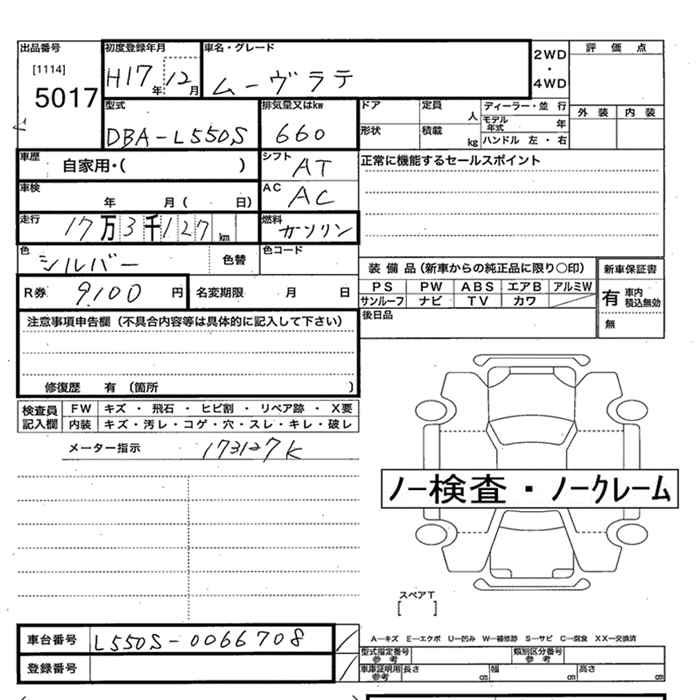 出品番号 [1114] 5017
初度登録年月 H17年 12月
車名・グレード ムーヴラテ
2WD・4WD
評価点
外装 内装
型式 DBA-L550S
排気量又はkw 660
ドア 定員 人 ディーラー・並行
形状 積載 kg モデル年式 年
ハンドル 左・右
車歴 自家用・( )
シフト AT
正常に機能するセールスポイント
車検 年 月( 日)
AC AC
走行 17万3千127km
燃料 ガソリン
色 シルバー 色替
色コード
装備品(新車からの純正品に限り○印)
新車保証書
PS PW ABS エアB アルミW
サンルーフ ナビ TV カワ
有 車内 積込無効
無
R券 9,100円
名変期限 月 日
後日品
注意事項申告欄(不具合内容等は具体的に記入して下さい)
修復歴 有(箇所 )
検査員記入欄
FW キズ・飛石・ヒビ割・リペア跡・X要
内装 キズ・汚レ・コゲ・穴・スレ・キレ・破レ
メーター指示 173127K
ノー検査・ノークレーム
スペアT
[ ]
車台番号 L550S-0066708
A―キズ E―エクボ U―凹み W―補修跡 S―サビ C―腐食 XX―交換済
型式指定番号 参考
類別区分番号 参考
登録番号
車庫証明用参考 長さ cm 幅 cm 高さ cm